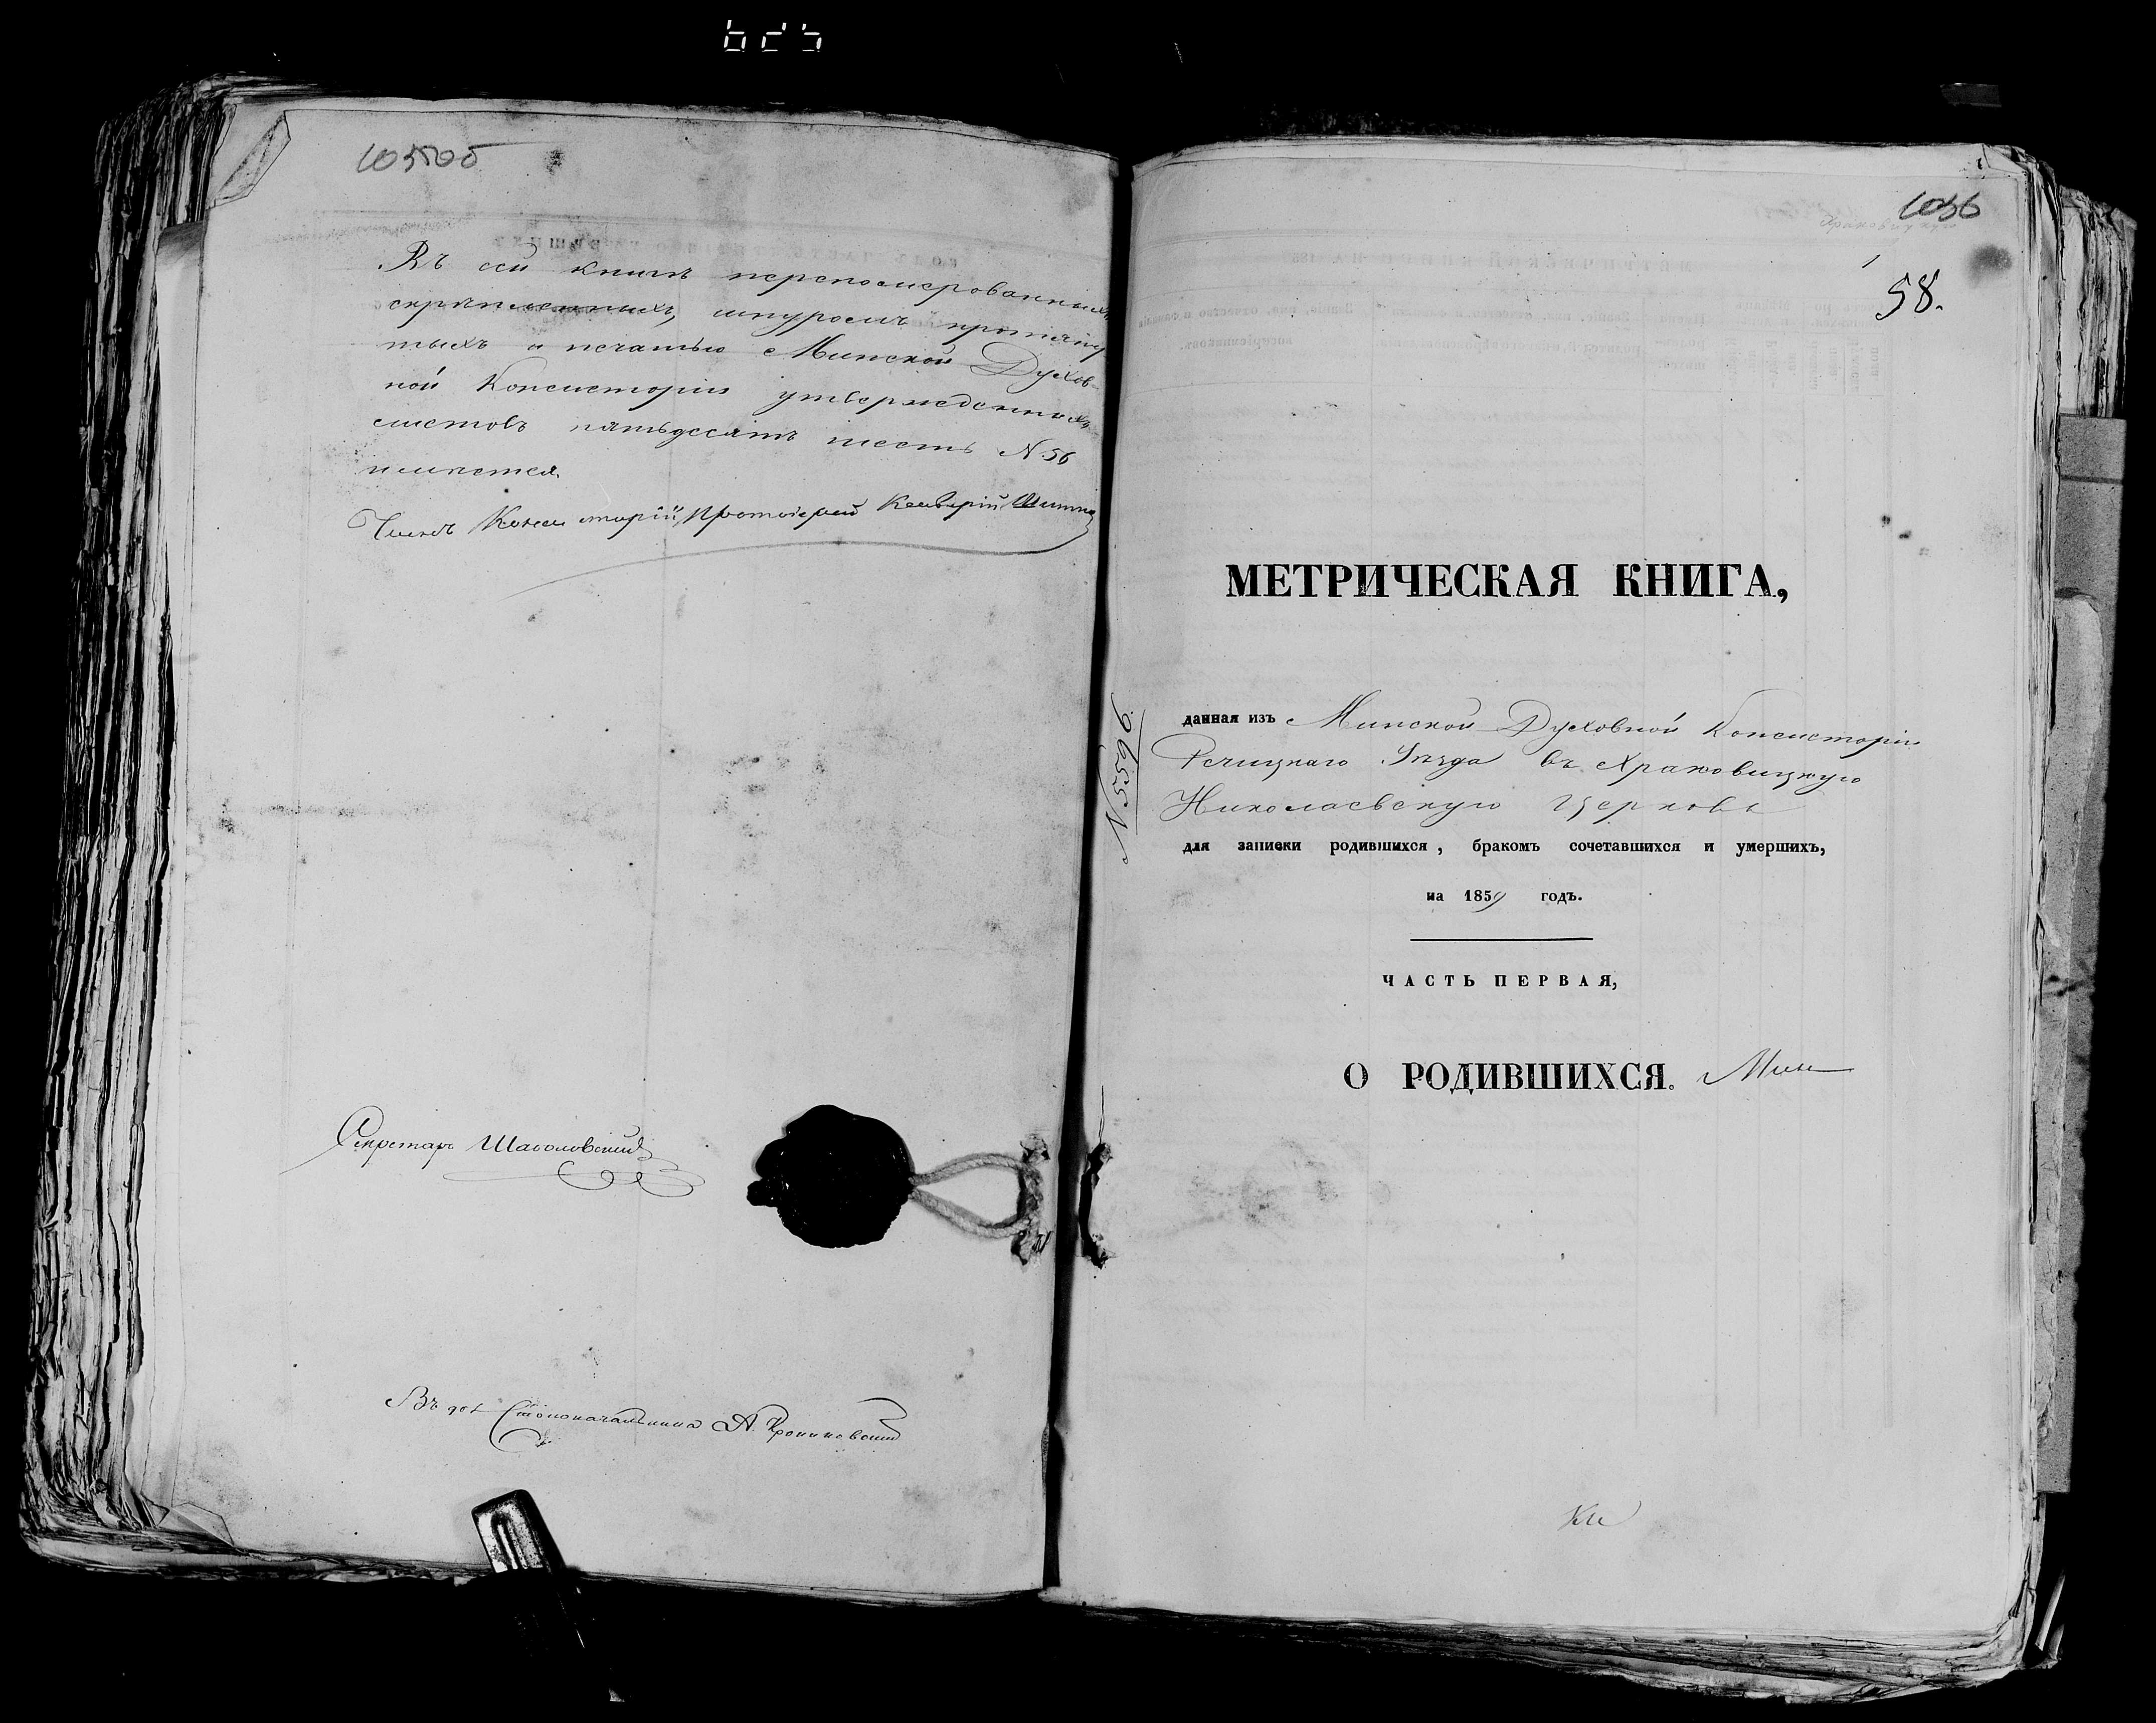 Въ сей книгѣ перенумерованныхъ
скрѣпленныхъ, шнуромъ протяну
тыхъ и печатью Минской Духов-
ной Консисторіи утвержденныхъ
листовъ пятьдесятъ шесть N. 56
имѣется.
Членъ Консисторіи, Протоіерей
Секретарь
Въ дол. Столоначальника А.
1036
58.
МЕТРИЧЕСКАЯ КНИГА,
данная изъ Минской Духовной Консисторіи
Речицкаго Уѣзда въ Храковицкую
Николаевскую Церковь
для записки родившихся, бракомъ сочетавшихся и умершихъ,
на 1859 годъ.
ЧАСТЬ ПЕРВАЯ,
О РОДИВШИХСЯ. Мин
N 5596